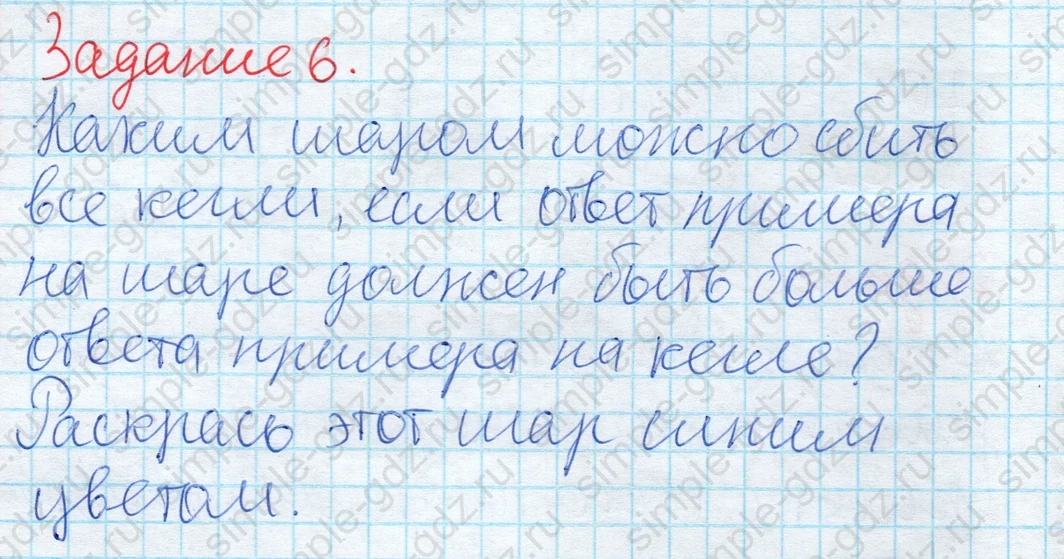 Задание 6.
Каким шаром можно сбить
все кегли, если ответ примера
на шаре должен быть больше
ответа примера на кегле?
Раскрась этот шар синим
цветом.
simple-gdz.ru